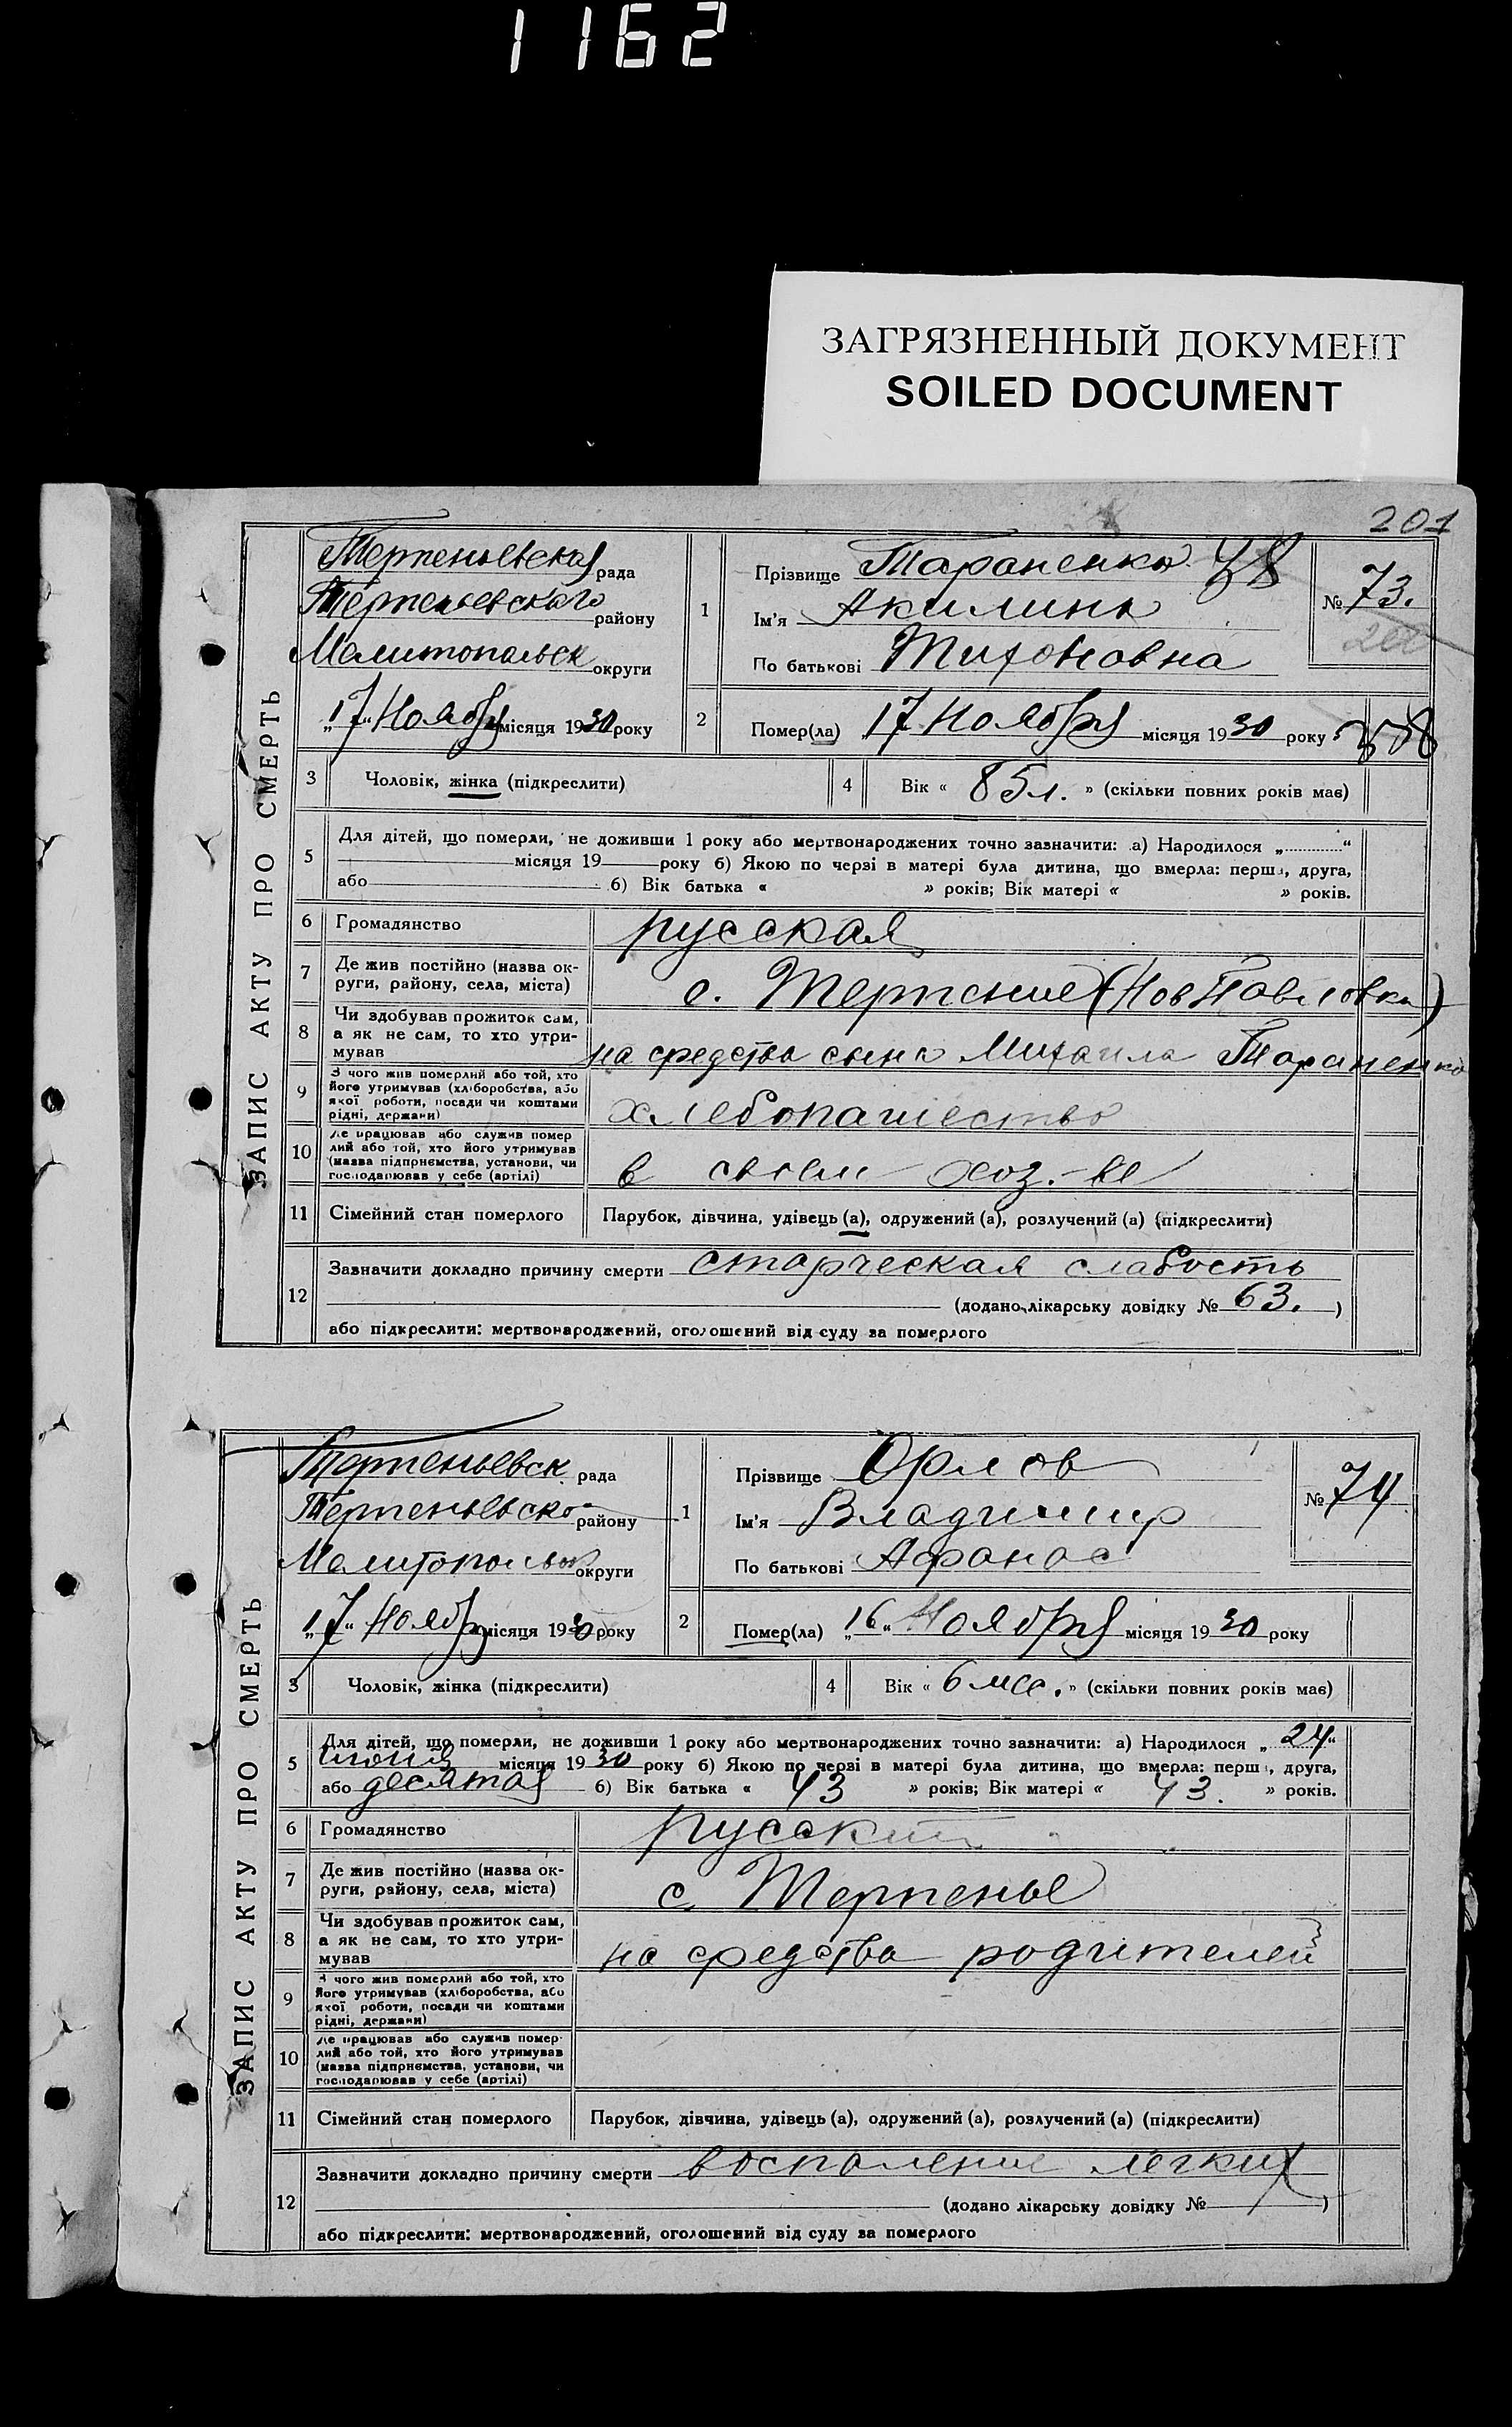 1162
ЗАГРЯЗНЕННЫЙ ДОКУМЕНТ
SOILED DOCUMENT
201
ЗАПИС АКТУ ПРО СМЕРТЬ
Терпеньевская рада
Терпеньевского району
Мелитопольск округи
„17“ Ноября місяця 1930 року
1
Прізвище Тараненко
Ім'я Акилина
По батькові Тихоновна
№ 73.
2
Помер(ла) 17 Ноября місяця 1930 року
3 Чоловік, жінка (підкреслити)
4 Вік « 85 л. » (скільки повних років має)
5 Для дітей, що померли, не доживши 1 року або мертвонароджених точно зазначити: а) Народилося „ “
місяця 19 року б) Якою по черзі в матері була дитина, що вмерла: перша, друга,
або б) Вік батька « » років; Вік матері « » років.
6 Громадянство русская
7 Де жив постійно (назва округи, району, села, міста) с. Терпение (Нов Павловка)
8 Чи здобував прожиток сам,
а як не сам, то хто утри-
мував на средства сына Михаила Тараненко
9 З чого жив померлий або той, хто
його утримував (хліборобства, або
якої роботи, посади чи коштами
рідні, держави) хлебопашество
10 Де працював або служив помер
лий або той, хто його утримував
(назва підприємства, установи, чи
господарював у себе (артілі) в своем хоз.-ве
11 Сімейний стан померлого Парубок, дівчина, удівець (а), одружений (а), розлучений (а) (підкреслити)
12 Зазначити докладно причину смерти старческая слабость
(додано лікарську довідку № 63. )
або підкреслити: мертвонароджений, оголошений від суду за померлого
ЗАПИС АКТУ ПРО СМЕРТЬ
Терпеньевск рада
Терпеньевско району
округи
„17“ Ноября місяця 1930 року
1
Прізвище Орлов
Ім'я Владимир
По батькові Афанас
№ 74
2
Помер(ла) „16“ Ноября місяця 1930 року
3 Чоловік, жінка (підкреслити)
4 Вік « 6 мсс. » (скільки повних років має)
5 Для дітей, що померли, не доживши 1 року або мертвонароджених точно зазначити: а) Народилося „ 24 “
місяця 1930 року б) Якою по черзі в матері була дитина, що вмерла: перша, друга,
або десятая б) Вік батька « 43 » років; Вік матері « 43. » років.
6 Громадянство русский
7 Де жив постійно (назва округи, району, села, міста) с. Терпенье
8 Чи здобував прожиток сам,
а як не сам, то хто утри-
мував на средства родителей
9 З чого жив померлий або той, хто
його утримував (хліборобства, або
якої роботи, посади чи коштами
рідні, держави)
10 Де працював або служив помер-
лий або той, хто його утримував
(назва підприємства, установи, чи
господарював у себе (артілі)
11 Сімейний стан померлого Парубок, дівчина, удівець (а), одружений (а), розлучений (а) (підкреслити)
12 Зазначити докладно причину смерти воспаление легких
(додано лікарську довідку № )
або підкреслити: мертвонароджений, оголошений від суду за померлого